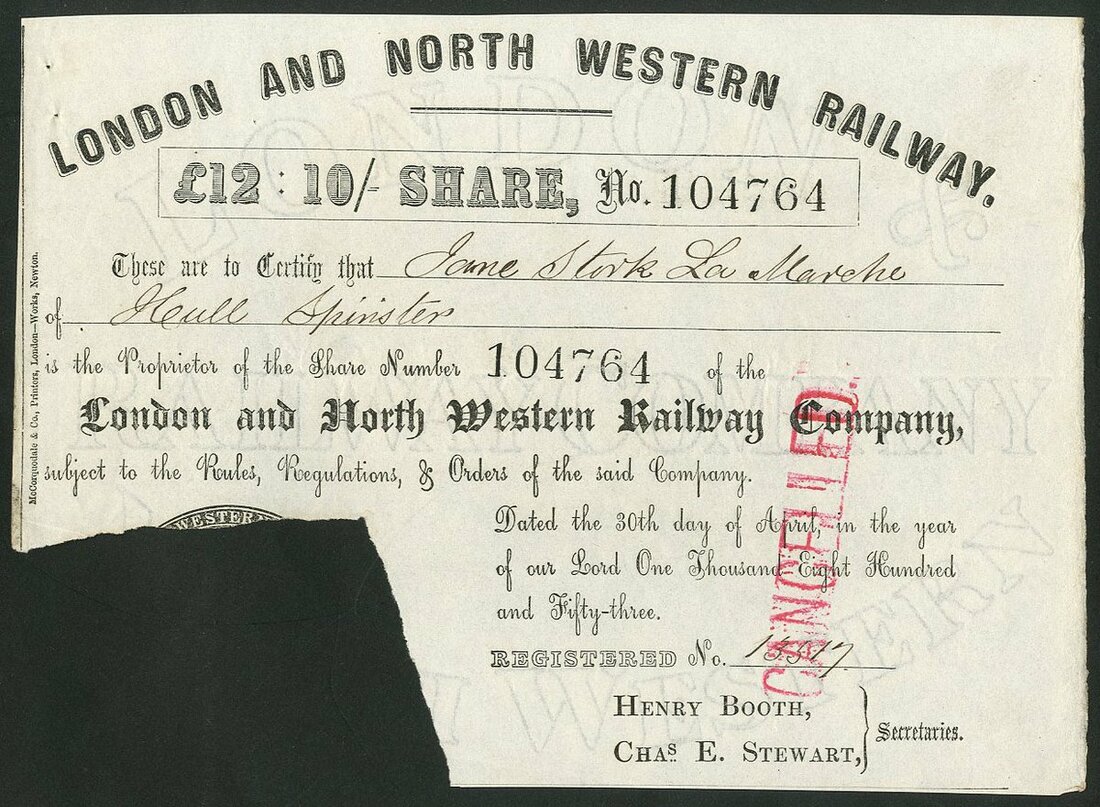 LONDON AND NORTH WESTERN RAILWAY.
£12 : 10/- SHARE, No. 104764
These are to Certify that Jane Stork La Marche
of Hull Spinster
is the Proprietor of the Share Number 104764 of the
London and North Western Railway Company,
subject to the Rules, Regulations, & Orders of the said Company.
WESTER
Dated the 30th day of April, in the year
of our Lord One Thousand Eight Hundred
and Fifty-three.
REGISTERED No. 13317
HENRY BOOTH,
CHAS. E. STEWART,
Secretaries.
CANCELLED.
McCorquodale & Co., Printers, London—Works, Newton.